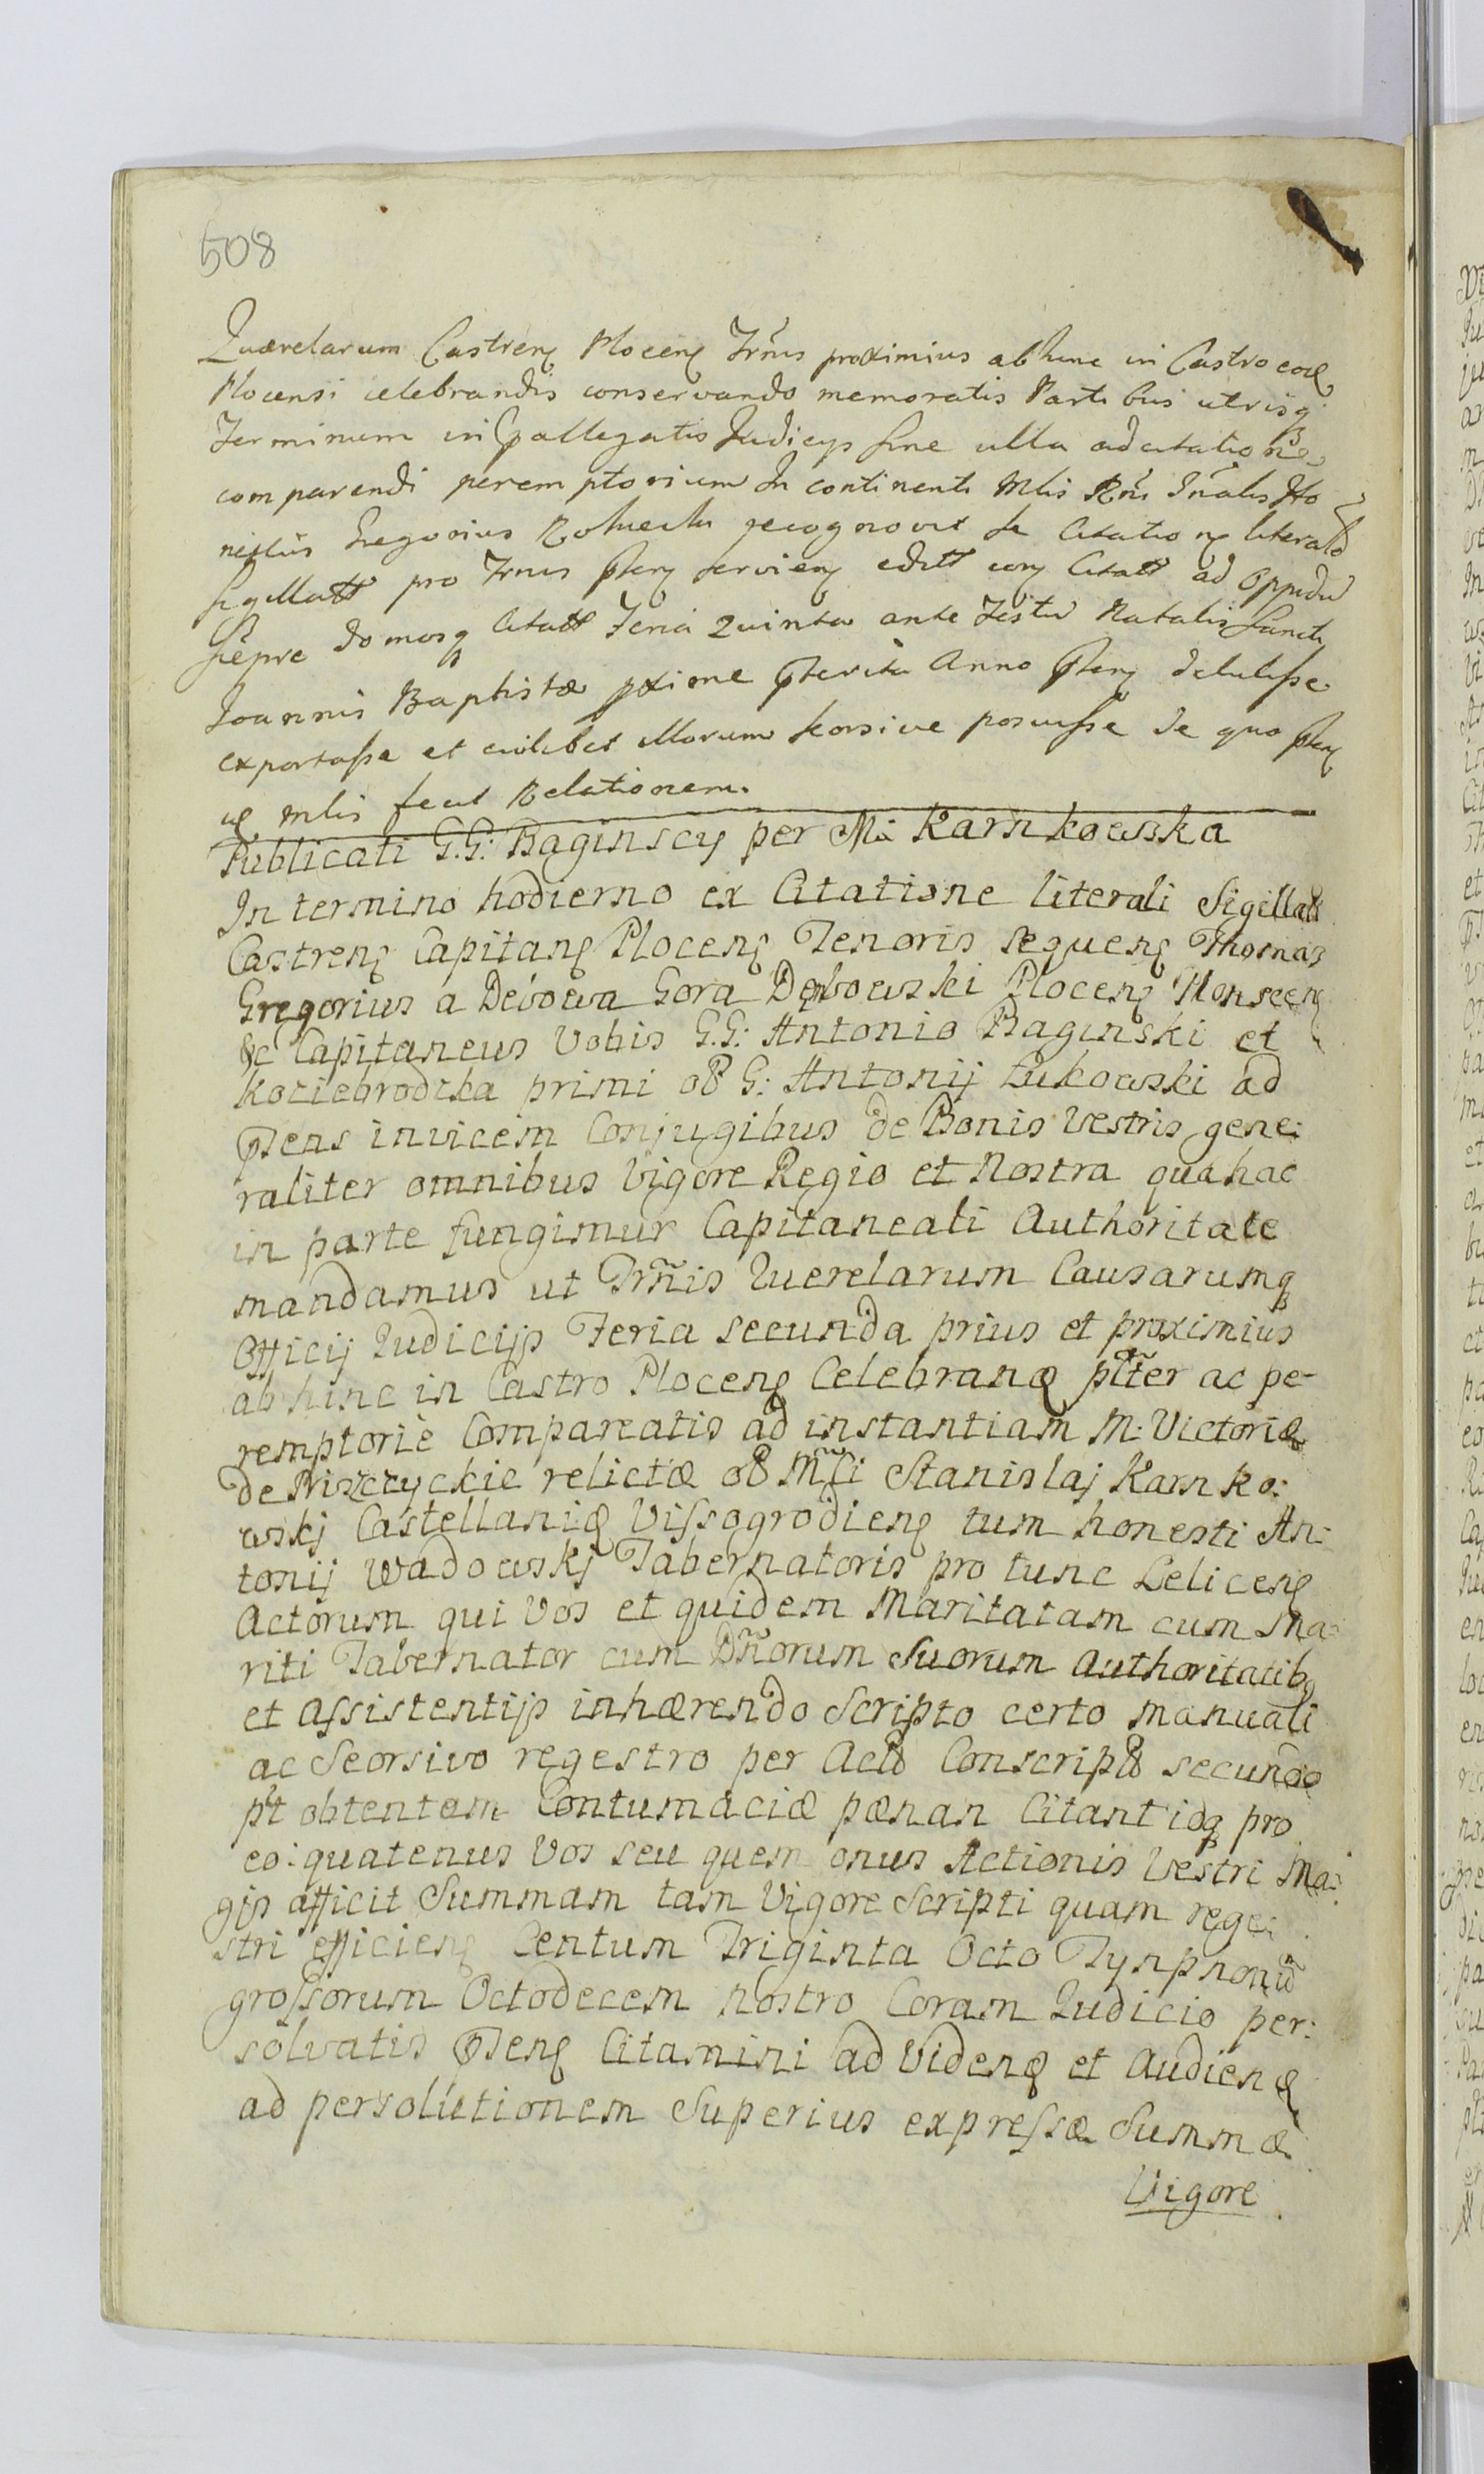 508
Quærelarum Castren Plocen Trñis proximius abhinc in Castro eod
Plocensi celebrandis conservando memoratis Partibus utrisq
Terminum in pallegatis Judicys sine ulla adcitatione
comparendi peremptorium In continenti Mlis Rñi Inalis Ho
nestus Gregorius recognovit se Citationes literales
sigillatt pro Trnis pten servien editt con Citatt ad Oppidu
Siepre domosq Citatt Feria Quinta ante Festu Natalis Sancti
Joannis Baptistæ pxime pterita Anno pten detulisse
exportasse et cuilibet illarum seorsive posuisse de quo pten
ac mlis fecit Relationem.
Publicati G.G: Baginscy per M: Karnkowska
In termino hodierno ex Citatione literali Sigillatt
Castren Capitan Plocen Tenoris sequen Thomas
Gregorius a Debowa Gora Debowski Plocen Monscen
&c Capitaneus Vobis G.G: Antonio Baginski et
Kociebrodzka primi olt G: Antonij Lukowski ad
ptens invicem Conjugibus de Bonis Vestris gene:
raliter omnibus Vigore Regio et Nostra qua hac
in parte fungimur Capitaneali Authoritate
mandamus ut Trñis Querelarum Causarumq
Officij Judicijs Feria secunda prius et proximius
abhinc in Castro Plocen Celebrand ptter ac pe-
remptoriè Compareatis ad instantiam M: Victoriæ
de Pniszczyckie relictæ olt Mfci Stanislaj Karnko:
wskj Castellani Vissogrodien tum honesti An:
tonij Wadowskj Tabernatoris pro tunc Lelicen
Actorum qui Vos et quidem Maritatam cum Ma:
riti Tabernator cum Dñorum Suorum Authoritatib
et Assistentijs inhærendo Scripto certo Manuali
ac Seorsivo regestro per Act Conscript secundo
pt obtentam Contumaciæ pænan Citant idq pro
eo: quatenus Vos seu quem onus Actionis Vestri Ma:
gis afficit Summam tam Vigore Scripti quam rege:
stri efficien Centum Triginta Octo Tynpnonu
grossorum Octodecem Nostro Coram Judicio per:
solvatis pten Citamini ad Vidend et Audiend
ad persolutionem Superius expressæ Summæ
Vigore